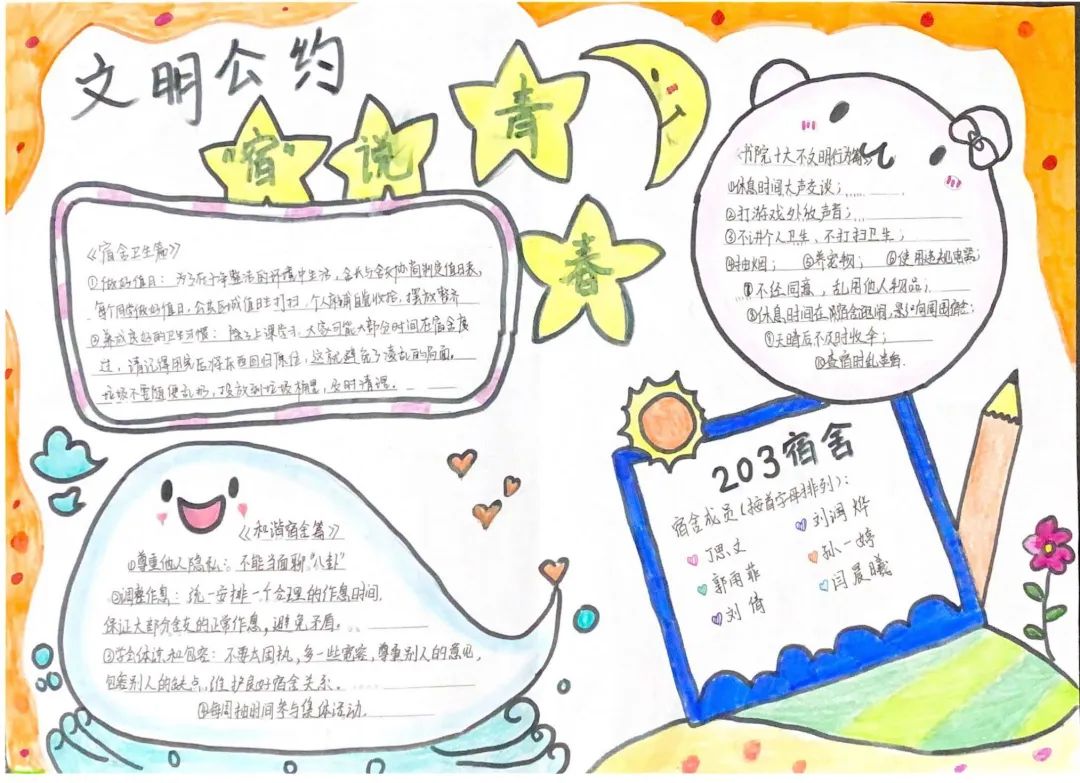 文明公约
“宿”说青春
《宿舍卫生篇》
①做好值日：为了在干净整洁的环境中生活，舍长与舍友协商制定值日表，
每个同学做好值日，公共区域值日生打扫，个人床铺自觉收拾，摆放整齐
②养成良好的卫生习惯：除了上课学习，大家可能大部分时间在宿舍度
过，请记得用完后将东西归原位，这就避免了凌乱的局面。
垃圾不要随便乱扔，投放到垃圾桶里，及时清理。
《书院十大不文明行为篇》
①休息时间大声交谈；
②打游戏外放声音；
③不讲个人卫生、不打扫卫生；
④抽烟； ⑤养宠物； ⑥使用违规电器；
⑦不经同意，乱用他人物品；
⑧休息时间在宿舍跑闹，影响周围宿舍；
⑨天晴后不及时收伞；
⑩查宿时乱串舍.
《和谐宿舍篇》
①尊重他人隐私：不能当面聊“八卦”
②调整作息：统一安排一个合理的作息时间，
保证大部分舍友的正常作息，避免矛盾。
③学会体谅和包容：不要太固执，多一些宽容，尊重别人的意见，
包容别人的缺点，维护良好宿舍关系。
④每周抽时间参与集体活动.
203宿舍
宿舍成员（按首字母排列）：
丁思文
郭雨菲
刘倩
刘润烨
孙一婷
闫晨曦